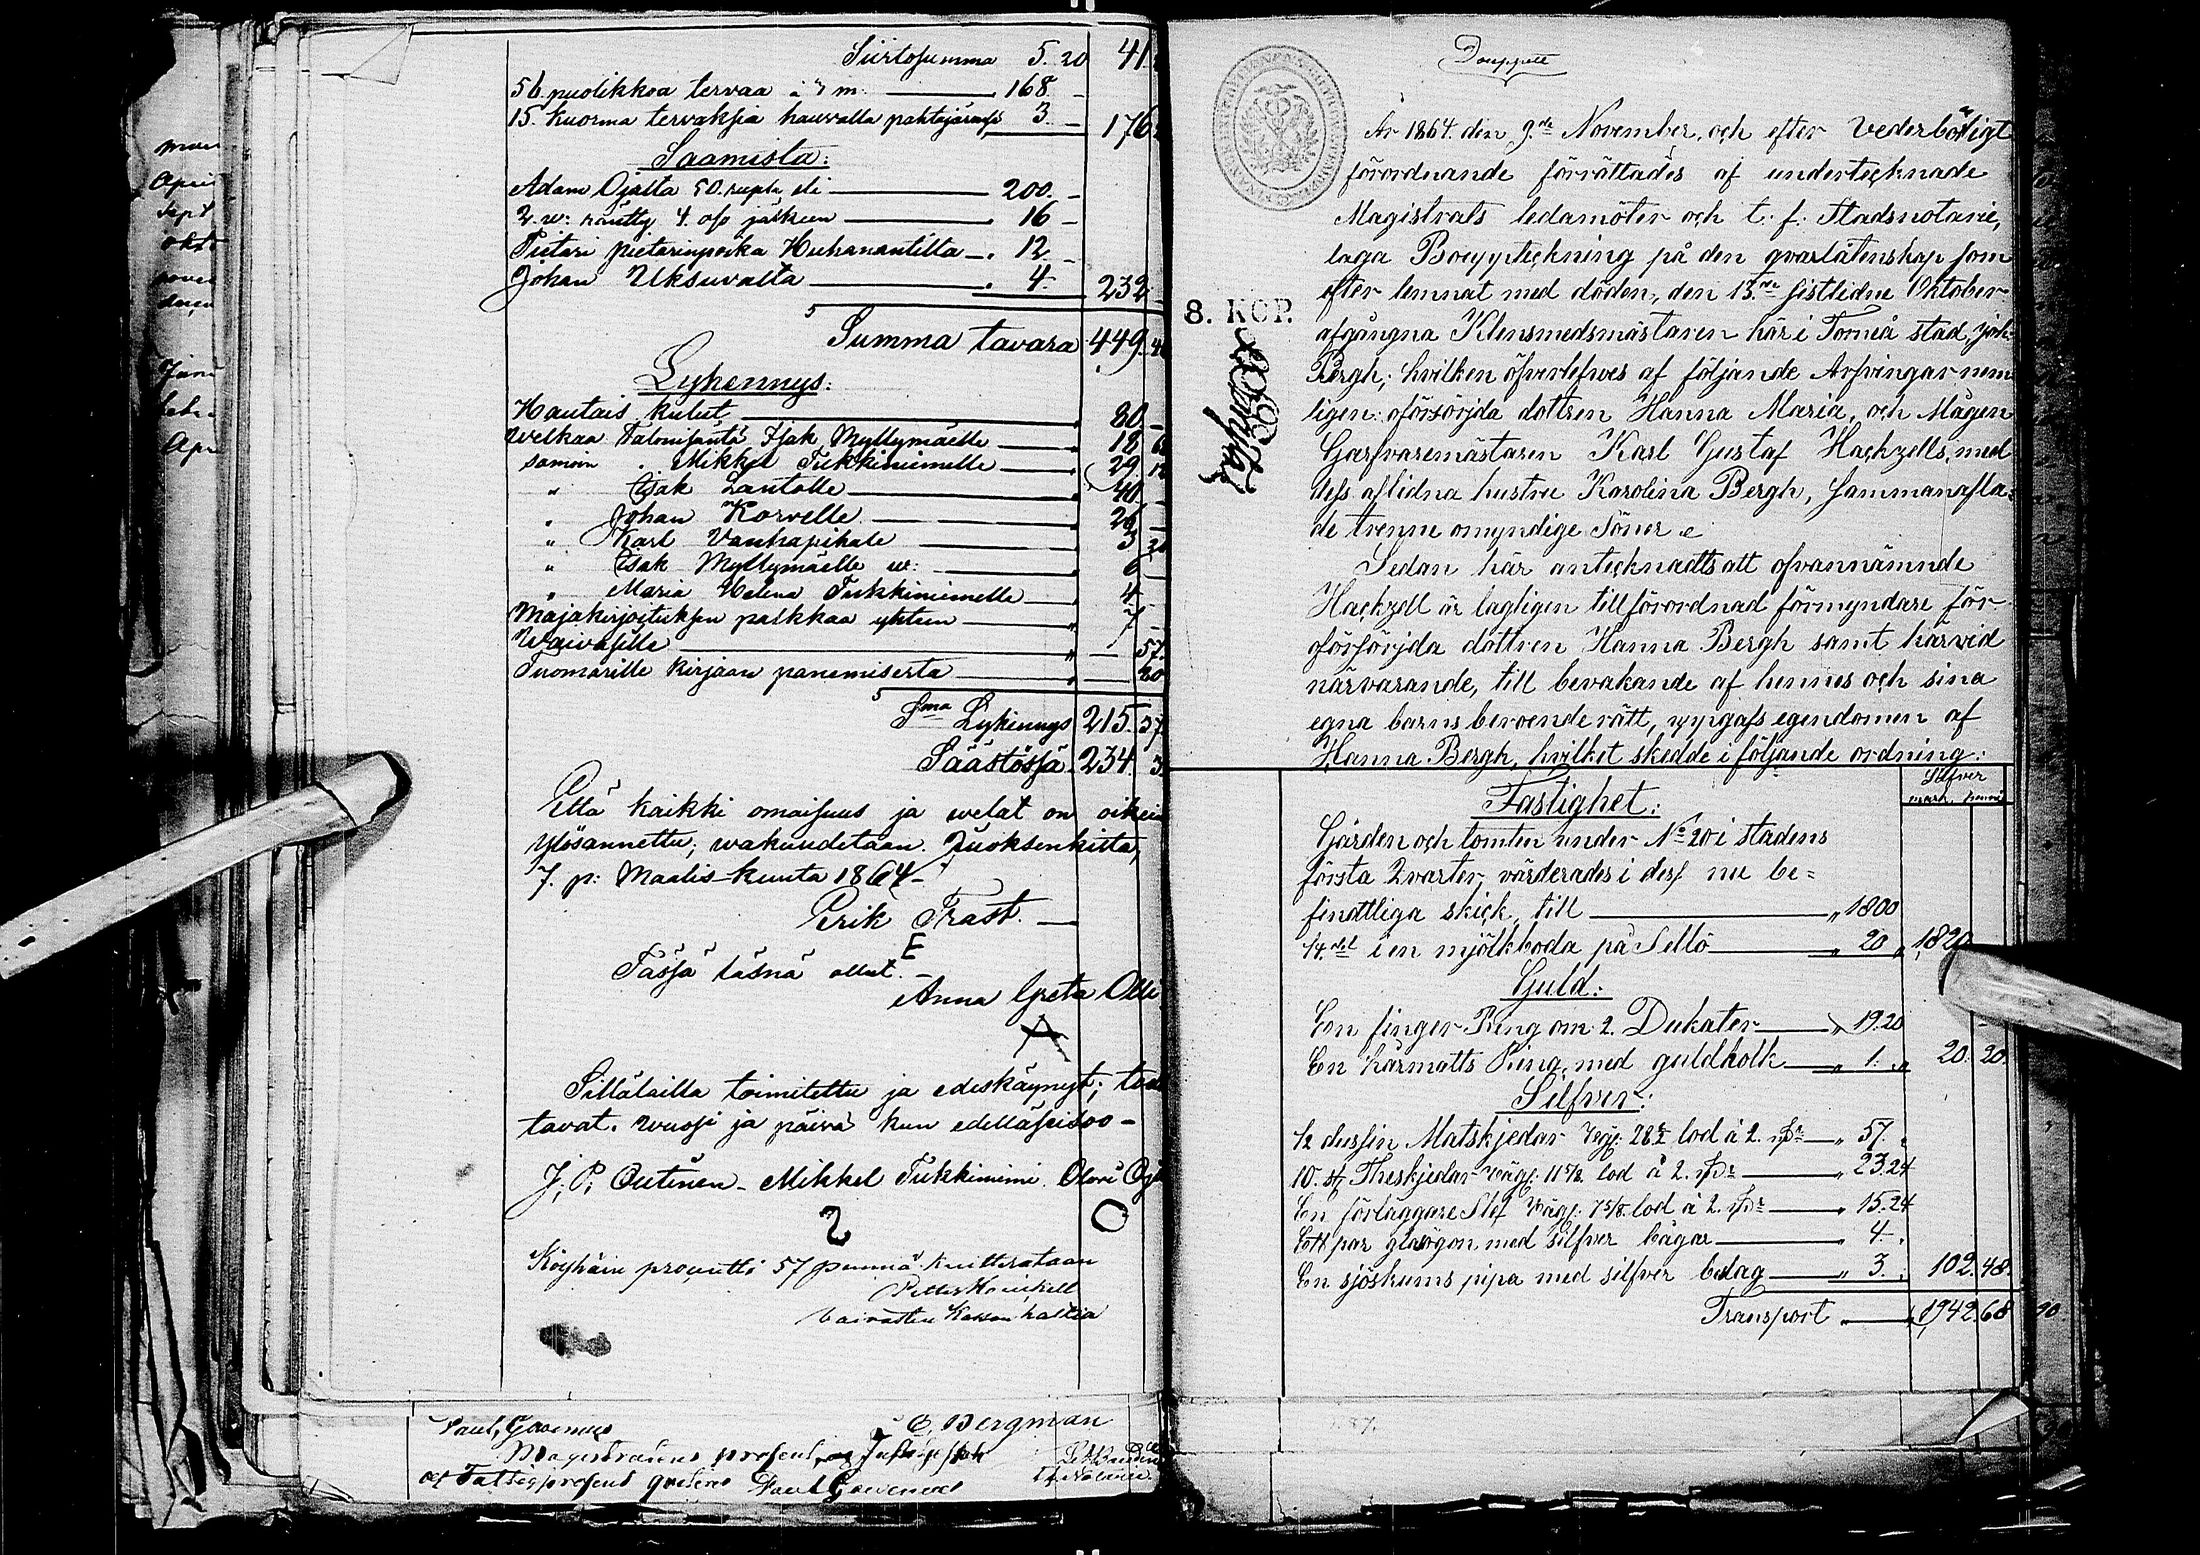 Siirtosumma 5. 20 41
56. puolikkoa tervaa à 3 m. 168. -
15. kuorma tervaksia hauvalla 3. - 176
Saamista:
Adam Ojalta 50. rupla eli 200. -
16 -
Pietari pietarinpoika Huhanantilta 12. -
Johan Uksuvalta 4. 232 -
Summa tavara 449. 40
Lykennys:
Hautais kulut 80 -
Welkaa Talonisäntä Isak Myllymäelle 18
samoin Mikkel Tukkiniemelle 29. 12
" Isak Lantolle 40. -
" Johan Korvelle 26 -
" Karl Vanhapihale 3
" Isak Myllymäelle w: 6 -
" Maria Helena Tukkiniemelle 4 -
Majakirjoituksen palkkaa yhteen 7 -
Waivasille — 57.
Tuomarille kirjaan panemisesta — 20
Sma Lykennys 215. 57.
Säästössä 234. 3
Että kaikki omaisuus ja welat on oikein
ylösannettu, wakuudetaan. Juoksenkilla,
7. p: Maalis-kuuta 1864 -
Erik Trast. —
E
Tässä läsnä ollut. -
Anna Greta Olli
A
Sillälailla toimitettu ja edeskäynyt; todis
tavat. wuosi ja päivä kun edelläseisoo -
J. P. Outinen - Mikkel Tukkiniemi. Olovi
2 O
Köyhäin prosentti 57 penniä kuitterataan
Petter Heinikell
Vaivasten Kassan haltia
E. Bergman
Magistratens
Boupptell
År 1864. den 9.de November, och efter Vederbörligt
förordnande förrättades af undertecknade
Magistrats ledamöter och t. f. Stadsnotarie,
laga Bouppteckning på den qvarlåtenskap som
efter lemnat med döden, den 13.de sistlidne Oktober
8. KOP.
afgångna Klensmedsmästaren här i Torneå stad, Joh.
Bergh; hvilken öfverlefves af följande Arfvingar nem-
ligen: oförsörjda dottren Hanna Maria, och Mågen
Garfvaremästaren Karl Gustaf Hackzells, med
dess aflidna hustru Karolina Bergh, sammanafla-
de trenne omyndige Söner.
Sedan här antecknadts att ofvannämnde
Hackzell är lagligen tillförordnad förmyndare för
oförsörjda dottren Hanna Bergh samt härvid
närvarande, till bevakande af hennes och sina
egna barns beroende rätt, uppgafs egendomen af
Hanna Bergh, hvilket skedde i följande ordning:
Silfver
mark. penni
Fastighet:
Gården och tomten under No 20 i stadens
första Qvarter, värderades i dess nu be=
findtliga skick, till " 1800
1/4.del i en mjölkboda på Sellö " 20 " 1,820
Guld:
En finger Ring om 2. Dukater " 19. 20
En Hårmatts Ring, med guldholk " 1. " 20. 20.
Silfver:
1/2 dussin Matskjedar väg: 28 1/2 lod à 2. " 57.
10. st Theskjedar väg: 11 5/8. lod à 2. " 23. 24
En förläggare Slef väg: 7 5/8. lod à 2. " 15. 24
Ett par glasögon med Silfver bågar " 4.
En sjöskums pipa med silfver beslag " 3. 102. 48.
Transport " 1,942. 68